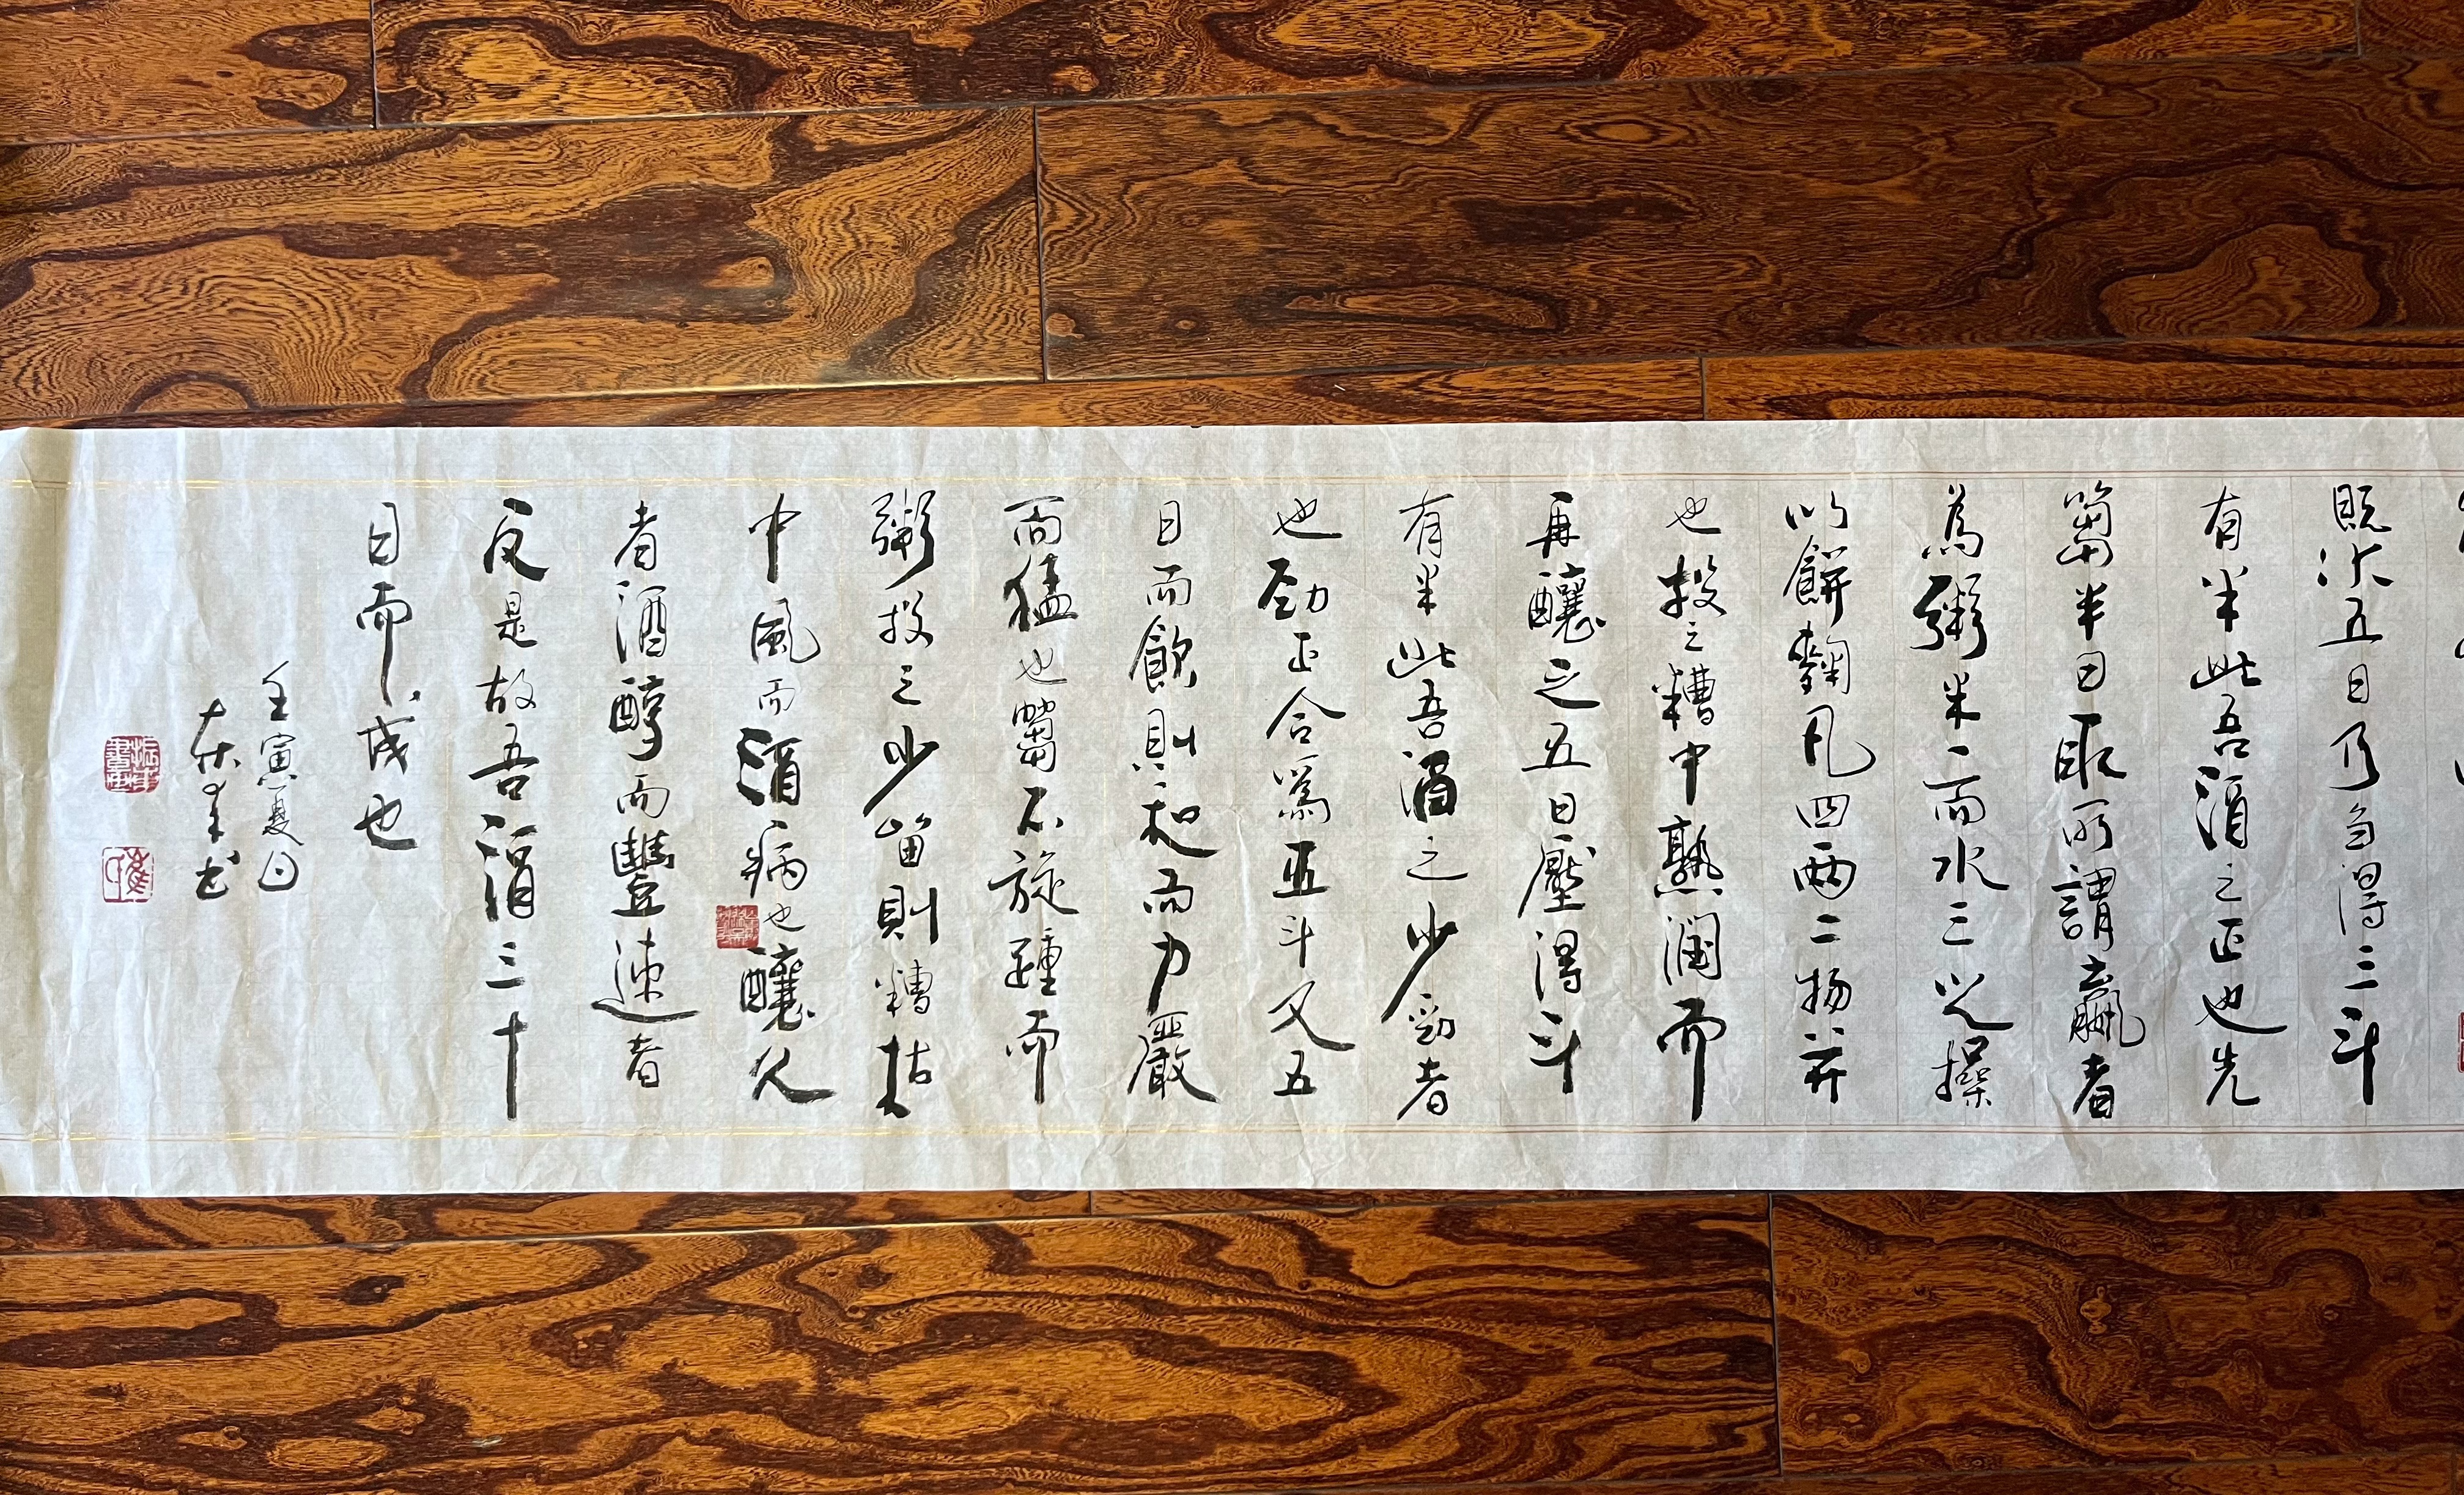 既水五日乃芻得三斗
有半此吾酒之正也先
芻半日取所謂贏者
為粥米一而水三之操
以餅麴凡四兩二物并
也投之糟中熟潤而
再釀之五日壓得斗
有半此吾酒之少勁者
也勁正合為五斗又五
日而飲則和而力嚴
而猛也芻不旋踵而
粥投之少留則糟枯
中風而酒病也釀久
者酒醇而豐速者
反是故吾酒三十
日而成也
壬寅夏日